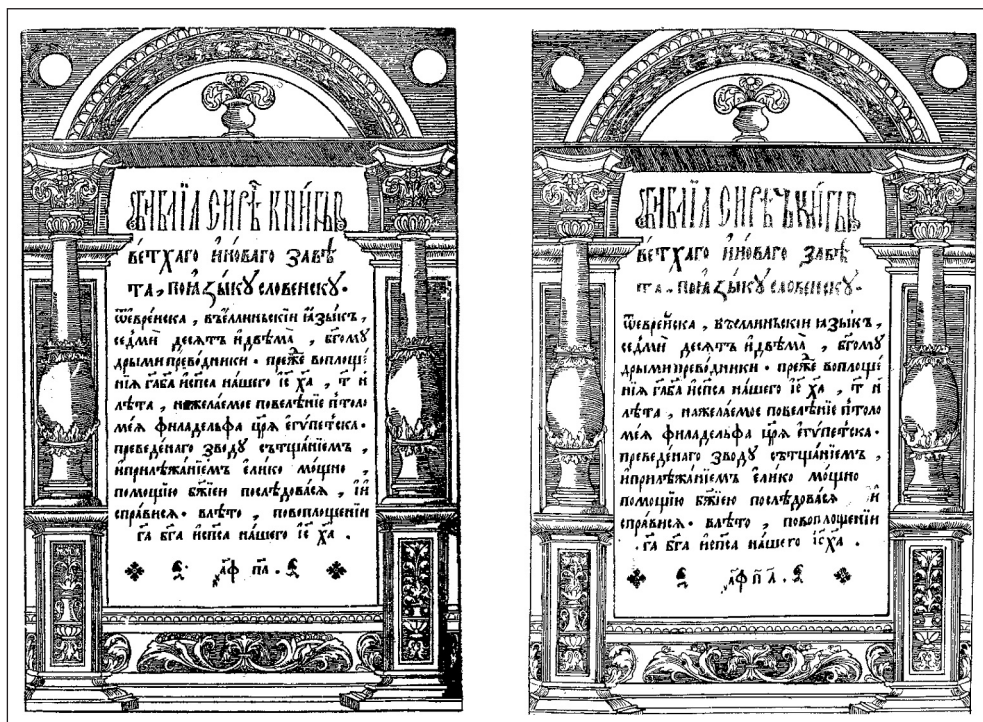 БИБЛЇА СИРѢЧЬ КНИГЫ
ВЕТХАГО ИНОВАГО ЗАВѢ
ТА, ПОꙖЗЫКꙊ СЛОВЕНСКꙊ.
ѿеврейска, въеллиньскіи ꙗзыкъ,
седмй десятъ идвѣма̀, бг҃ому
дрыми преводники. преже воплоще
нїѧ гаⷭ҇ бга испⷭ҇а нашего іс҃ хаⷭ҇, т҃ и
лѣта, нажелаемое повелѣнїе птоло
меѧ филаделъфа црѧ егѵпетска.
преведенаго зводꙋ сътщанїемъ,
иприлѣжанїемъ елико мощно,
помощїю бж҃їею послѣдовасѧ, їи
справисѧ. влѣто, повоплощенїи
га бга испса нашего іс ха.
҂аф па.
БИБЛЇА СИРѢЧЬ КНИГЫ
ВЕТХАГО ИНОВАГО ЗАВѢ
ТА, ПОꙖЗЫКꙊ СЛОВЕНСКꙊ.
ѿеврейска, въеллиньскіи ꙗзыкъ,
седмй десятъ идвѣма̀, бг҃ому
дрыми преводники. преже воплоще
нїѧ га бга испса нашего іс ха, т҃ и
лѣта, нажелаемое повелѣнїе птоло
меѧ филаделъфа црѧ егѵпетска.
преведенаго зводꙋ сътщанїемъ,
иприлѣжанїемъ елико мощно
помощїю бж҃їею послѣдовасѧ їи
справисѧ. влѣто, повоплощенїи
га бга испса нашего іс ха.
҂аф п а.